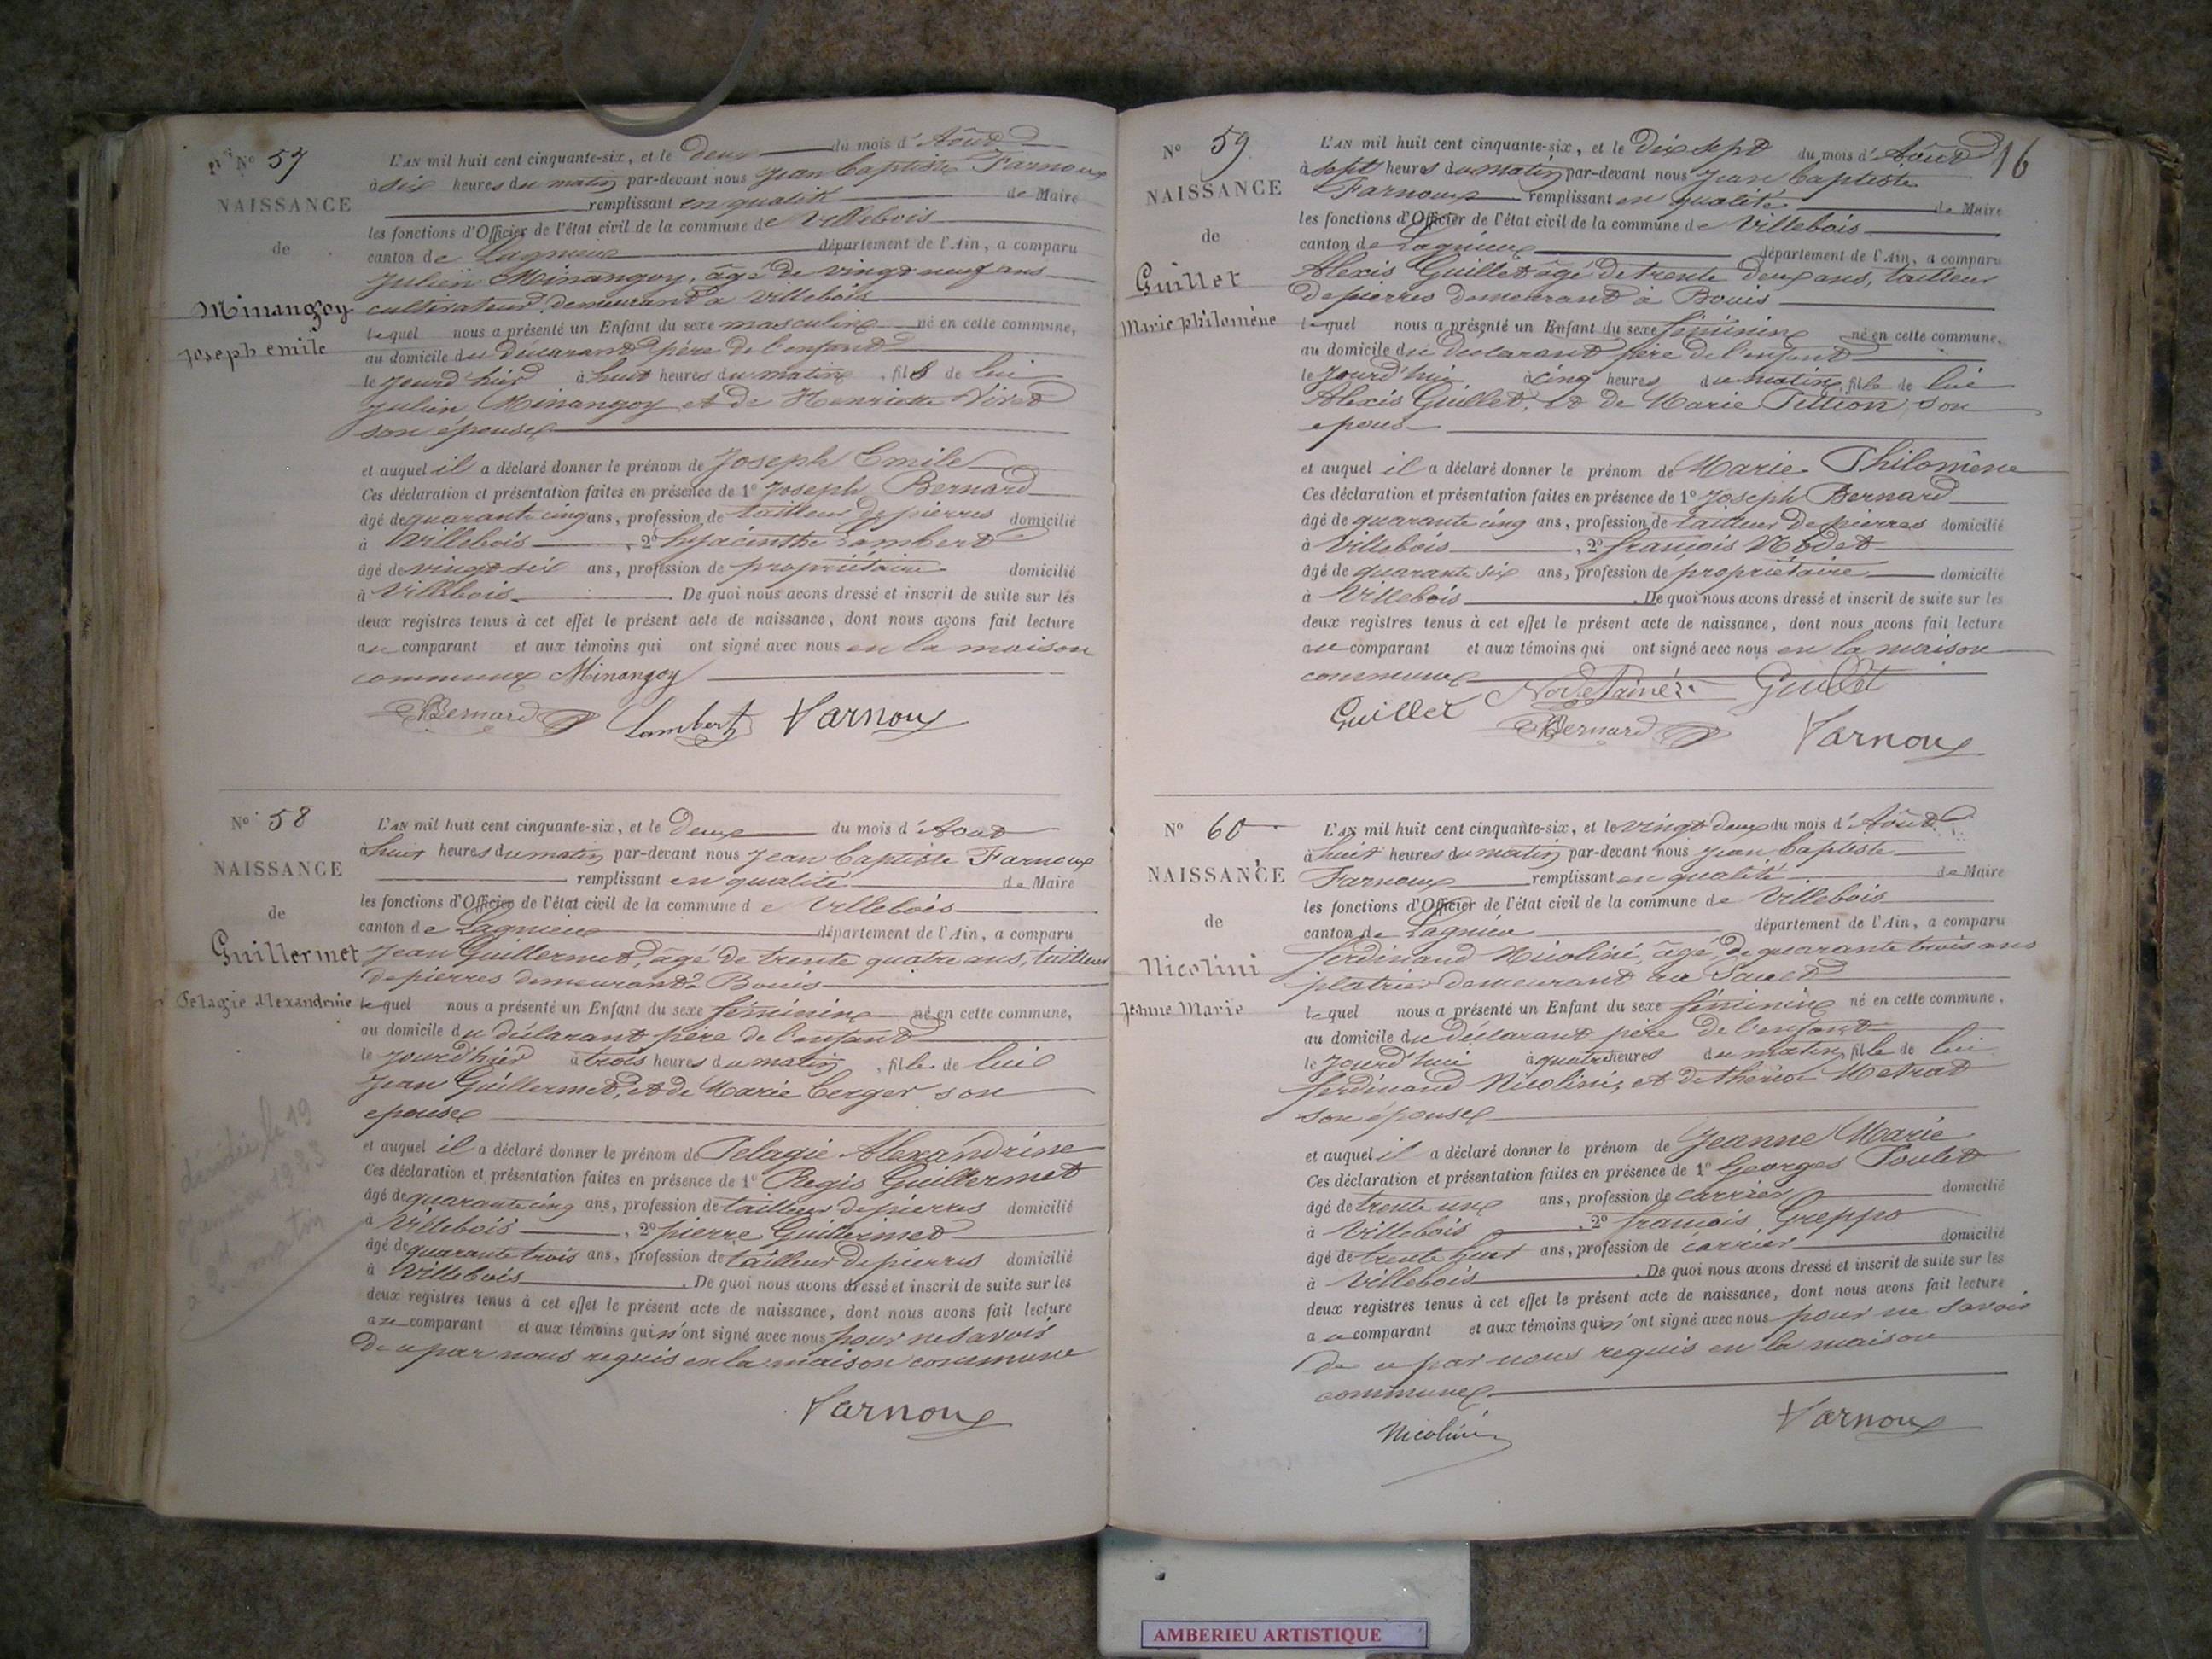 N° 57
NAISSANCE
de
Minangoy
Joseph emile
L'AN mil huit cent cinquante-six, et le deux du mois d'Août
à six heures du matin par-devant nous Jean Baptiste Varnoux
remplissant en qualité de Maire
les fonctions d'Officier de l'état civil de la commune de Villebois
canton de Lagnieu département de l'Ain, a comparu
Julien Minangoy, âgé de vingt neuf ans
cultivateur demeurant à Villebois
lequel nous a présenté un Enfant du sexe masculin né en cette commune,
au domicile du déclarant père de l'enfant
le jourd'hier à huit heures du matin, fils de lui
Julien Minangoy et de Henriette Viret
son épouse
et auquel il a déclaré donner le prénom de Joseph Emile
Ces déclaration et présentation faites en présence de 1° Joseph Bernard
âgé de quarante cinq ans, profession de tailleur de pierres domicilié
à Villebois, 2° hyacinthe Lambert
âgé de vingt six ans, profession de propriétaire domicilié
à Villebois. De quoi nous avons dressé et inscrit de suite sur les
deux registres tenus à cet effet le présent acte de naissance, dont nous avons fait lecture
au comparant et aux témoins qui ont signé avec nous en la maison
commune Minangoy
Bernard Lambert Varnoux
N° 58
NAISSANCE
de
Guillermet
Pelagie Alexandrine
L'AN mil huit cent cinquante-six, et le deux du mois d'Aout
à huit heures du matin par-devant nous Jean Baptiste Varnoux
remplissant en qualité de Maire
les fonctions d'Officier de l'état civil de la commune de Villebois
canton de Lagnieu département de l'Ain, a comparu
Jean Guillermet, âgé de trente quatre ans, tailleur
de pierres demeurant à Bouis
lequel nous a présenté un Enfant du sexe féminin né en cette commune,
au domicile du déclarant père de l'enfant
le jourd'hier à trois heures du matin, fille de lui
Jean Guillermet, et de Marie Berger son
epouse
et auquel il a déclaré donner le prénom de Pelagie Alexandrine
Ces déclaration et présentation faites en présence de 1° Regis Guillermet
âgé de quarante cinq ans, profession de tailleur de pierres domicilié
à Villebois, 2° pierre Guillermet
âgé de quarante trois ans, profession de tailleur de pierres domicilié
à Villebois. De quoi nous avons dressé et inscrit de suite sur les
deux registres tenus à cet effet le présent acte de naissance, dont nous avons fait lecture
au comparant et aux témoins qui n'ont signé avec nous pour ne savoir
de ce par nous requis en la maison commune
Varnoux
décédée le 19
janvier 1923
à matin
16
N° 59
NAISSANCE
de
Guillet
Marie philomène
L'AN mil huit cent cinquante-six, et le dix sept du mois d'Août
à sept heures du matin par-devant nous Jean Baptiste
Varnoux remplissant en qualité de Maire
les fonctions d'Officier de l'état civil de la commune de Villebois
canton de Lagnieu département de l'Ain, a comparu
Alexis Guillet âgé de trente deux ans, tailleur
de pierres demeurant à Bouis
lequel nous a présenté un Enfant du sexe féminin né en cette commune,
au domicile du déclarant père de l'enfant
le jourd'hui à cinq heures du matin, fille de lui
Alexis Guillet, et de Marie Tillion son
epous
et auquel il a déclaré donner le prénom de Marie Philomène
Ces déclaration et présentation faites en présence de 1° Joseph Bernard
âgé de quarante cinq ans, profession de tailleur de pierres domicilié
à Villebois, 2° françois Nodet
âgé de quarante six ans, profession de propriétaire domicilié
à Villebois. De quoi nous avons dressé et inscrit de suite sur les
deux registres tenus à cet effet le présent acte de naissance, dont nous avons fait lecture
au comparant et aux témoins qui ont signé avec nous en la maison
commune
Guillet Nodet ainé Guillet
Bernard Varnoux
N° 60
NAISSANCE
de
Nicolini
Jeanne Marie
L'AN mil huit cent cinquante-six, et le vingt deux du mois d'Août
à huit heures du matin par-devant nous Jean Baptiste
Varnoux remplissant en qualité de Maire
les fonctions d'Officier de l'état civil de la commune de Villebois
canton de Lagnieu département de l'Ain, a comparu
ferdinand Nicolini, âgé de quarante trois ans
platrier demeurant au Sault
lequel nous a présenté un Enfant du sexe féminin né en cette commune,
au domicile du déclarant père de l'enfant
le jourd'hui à quatre heures du matin, fille de lui
ferdinand Nicolini, et de thérèse Metrat
son épouse
et auquel il a déclaré donner le prénom de Jeanne Marie
Ces déclaration et présentation faites en présence de 1° Georges Poulet
âgé de trente un ans, profession de carrier domicilié
à Villebois, 2° françois Greppo
âgé de trente huit ans, profession de carrier domicilié
à Villebois. De quoi nous avons dressé et inscrit de suite sur les
deux registres tenus à cet effet le présent acte de naissance, dont nous avons fait lecture
au comparant et aux témoins qui n'ont signé avec nous pour ne savoir
de ce par nous requis en la maison
commune
Nicolini Varnoux
AMBERIEU ARTISTIQUE